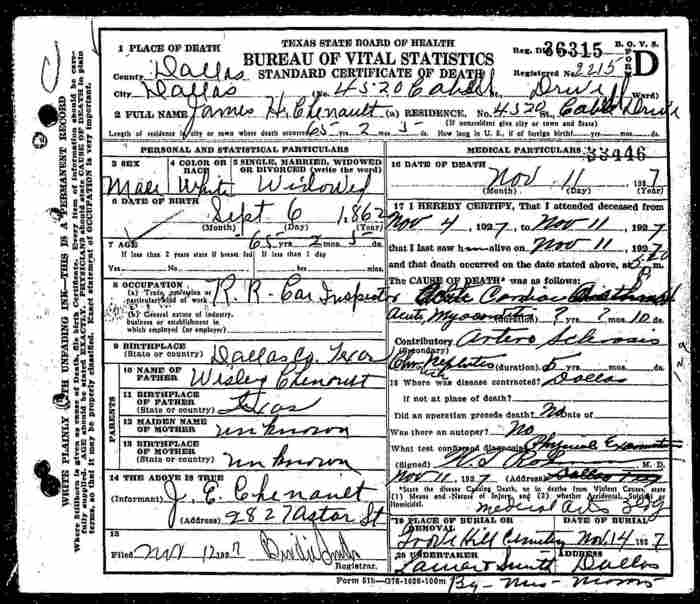 TEXAS STATE BOARD OF HEALTH
BUREAU OF VITAL STATISTICS
STANDARD CERTIFICATE OF DEATH
Reg. Dis. 36315 B. O. V. S.
FORM D
Registered No. 2215
1 PLACE OF DEATH
County Dallas
City Dallas (No. 4520 Cabell Drive Ward)
2 FULL NAME James H. Chenault (a) RESIDENCE. No. 4520 Cabell Drive
(If nonresident give city or town and State)
Length of residence in city or town where death occurred 65 yrs. 2 mos. 5 ds. How long in U. S., if of foreign birth? yrs. mos. ds.
WRITE PLAINLY WITH UNFADING INK—THIS IS A PERMANENT RECORD
PERSONAL AND STATISTICAL PARTICULARS
3 SEX Male
4 COLOR OR RACE White
5 SINGLE, MARRIED, WIDOWED OR DIVORCED (write the word) Widowed
6 DATE OF BIRTH Sept 6 1862
(Month) (Day) (Year)
7 AGE 65 yrs. 2 mos. 5 ds.
If less than 2 years state if breast fed If less than 1 day
Yes No hrs. min.
8 OCCUPATION
(a) Trade, profession or particular kind of work R. R. Car Inspector
(b) General nature of industry, business or establishment in which employed (or employer)
9 BIRTHPLACE
(State or country) Dallas Co. Texas
PARENTS
10 NAME OF FATHER Wisley Chenault
11 BIRTHPLACE OF FATHER
(State or country) Texas
12 MAIDEN NAME OF MOTHER unknown
13 BIRTHPLACE OF MOTHER
(State or country) unknown
14 THE ABOVE IS TRUE
(Informant) J. E. Chenault
2827 Astor St
15
Filed Nov 12 1927
Registrar.
MEDICAL PARTICULARS 33446
16 DATE OF DEATH
Nov 11 1927
(Month) (Day) (Year)
17 I HEREBY CERTIFY, That I attended deceased from
Nov 4, 1927, to Nov 11, 1927
that I last saw him alive on Nov 11, 1927
and that death occurred on the date stated above, at
The CAUSE OF DEATH* was as follows:
Cardiac
Acute Myocarditis (duration) ? yrs ? mos. 10 ds.
Contributory Arterio Sclerosis
(Secondary)
Nephritis (duration) 5
18 Where was disease contracted? Dallas
if not at place of death?
Did an operation precede death? No Date of
Was there an autopsy? No
What test confirmed diagnosis? Physical Examination
(Signed) M. D.
Nov 11, 1927 (Address) Dallas
* State the Disease Causing Death, or in deaths from Violent Causes, state (1) Means and Nature of Injury, and (2) whether Accidental, Suicidal or Homicidal.
Medical Arts Bldg
19 PLACE OF BURIAL OR REMOVAL DATE OF BURIAL
Grove Hill Cemetery Nov. 14 1927
20 UNDERTAKER ADDRESS
Lamar & Smith Dallas
By - Mrs
Form 51b